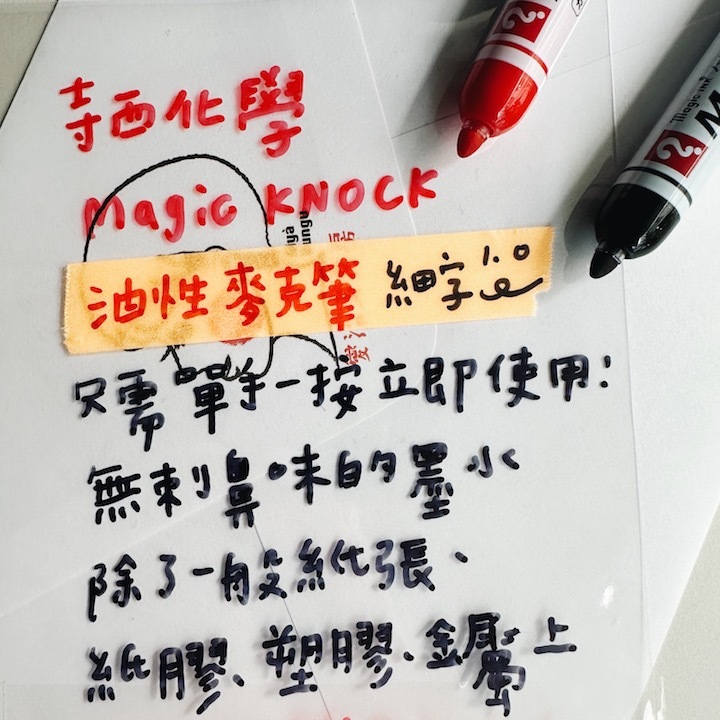 寺西化學
Magic KNOCK
油性麥克筆 細字
只需單手一按立即使用!
無刺鼻味的墨水
除了一般紙張、
紙膠、塑膠、金屬上
Magic INK